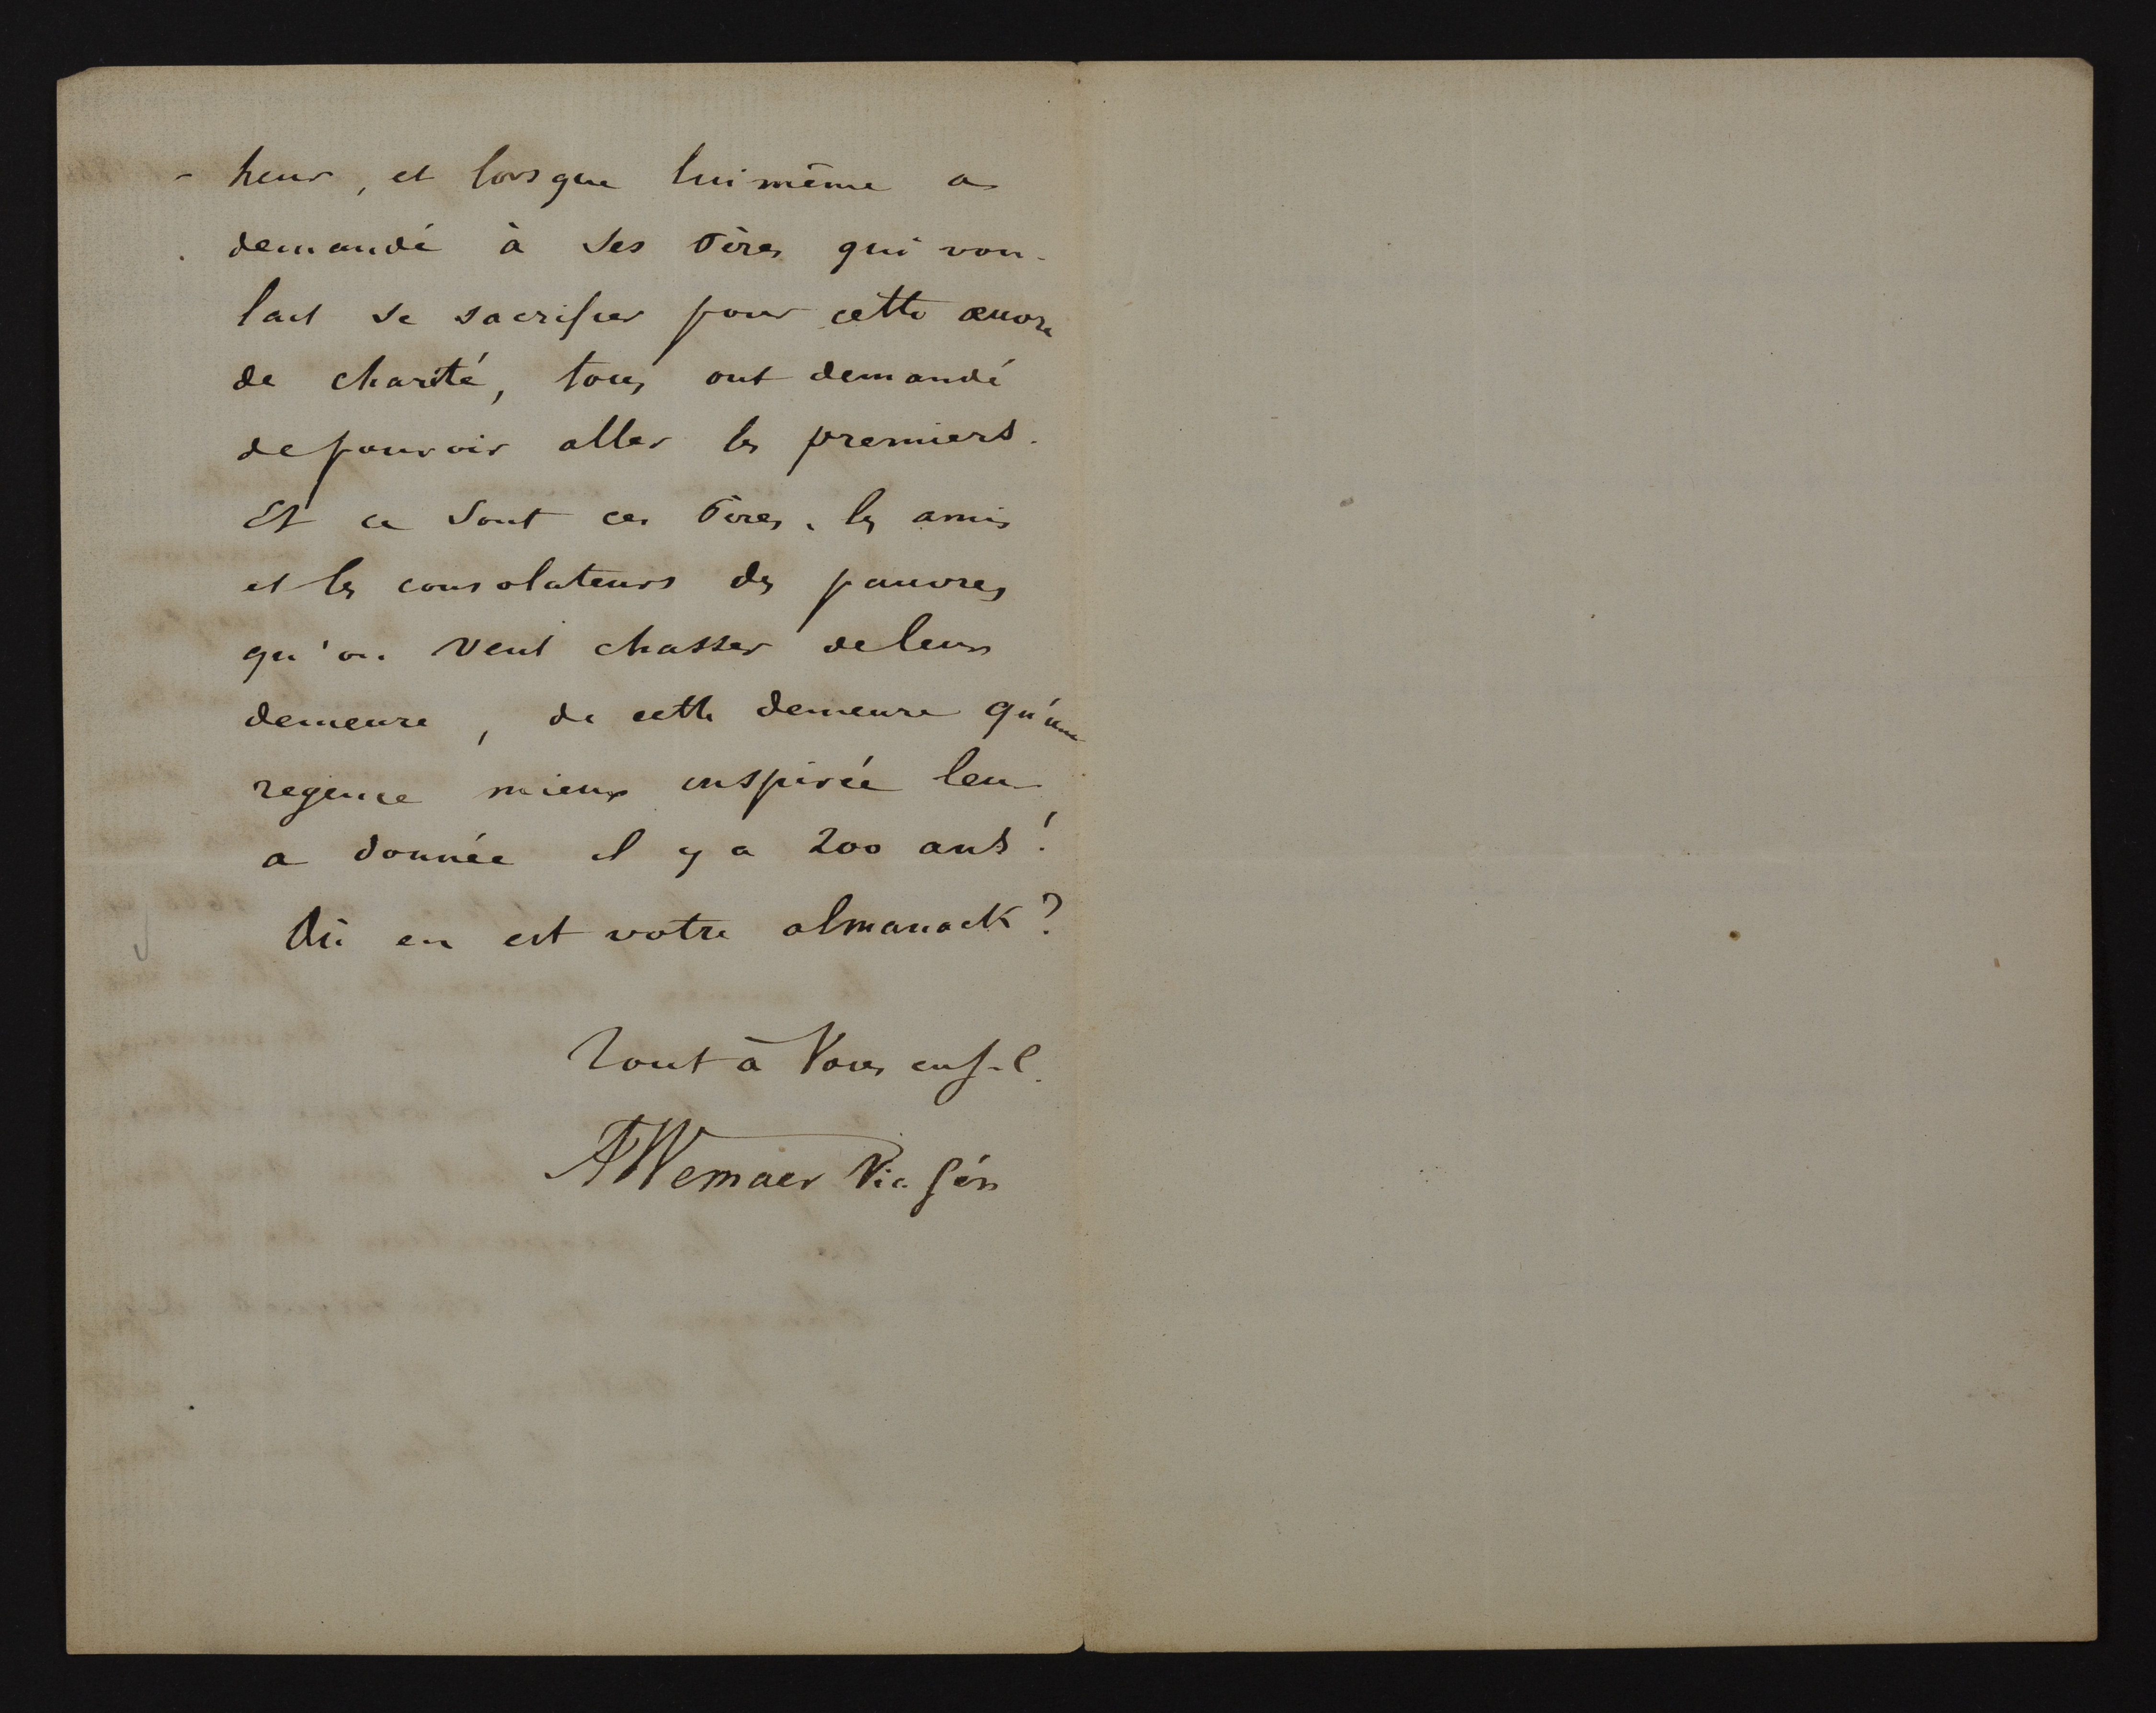 - heur, et lorsque lui même a
demandé à ses Pères qui vou-
lait se sacrifier pour cette œuvre
de charité, tous ont demandé
de pouvoir aller les premiers.
Et ce sont ces Pères, les amis
et les consolateurs des pauvres
qu'on veut chasser de leur
demeure, de cette demeure qu'une
regence mieux inspirée leur
a donnée il y a 200 ans!
Où en est votre almanack?
Tout à Vous en J. C.
A Wemaer Vic. Gén